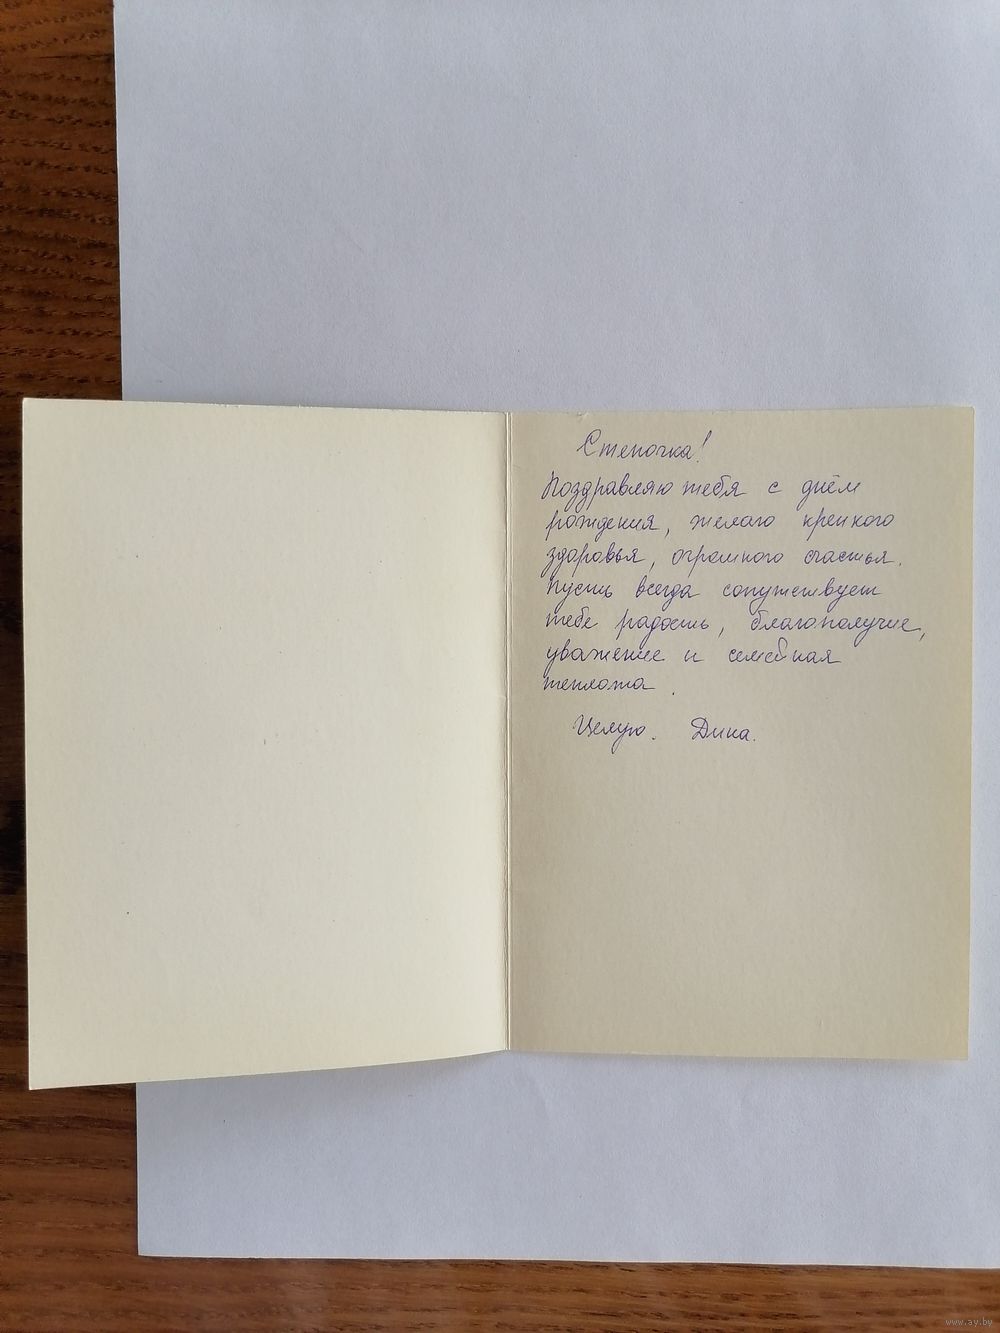 Степочка!
Поздравляю тебя с днём
рождения, желаю крепкого
здоровья, огромного счастья.
Пусть всегда сопутствует
тебе радость, благополучие,
уважение и семейная
теплота.
Целую. Дина.
www.ay.by